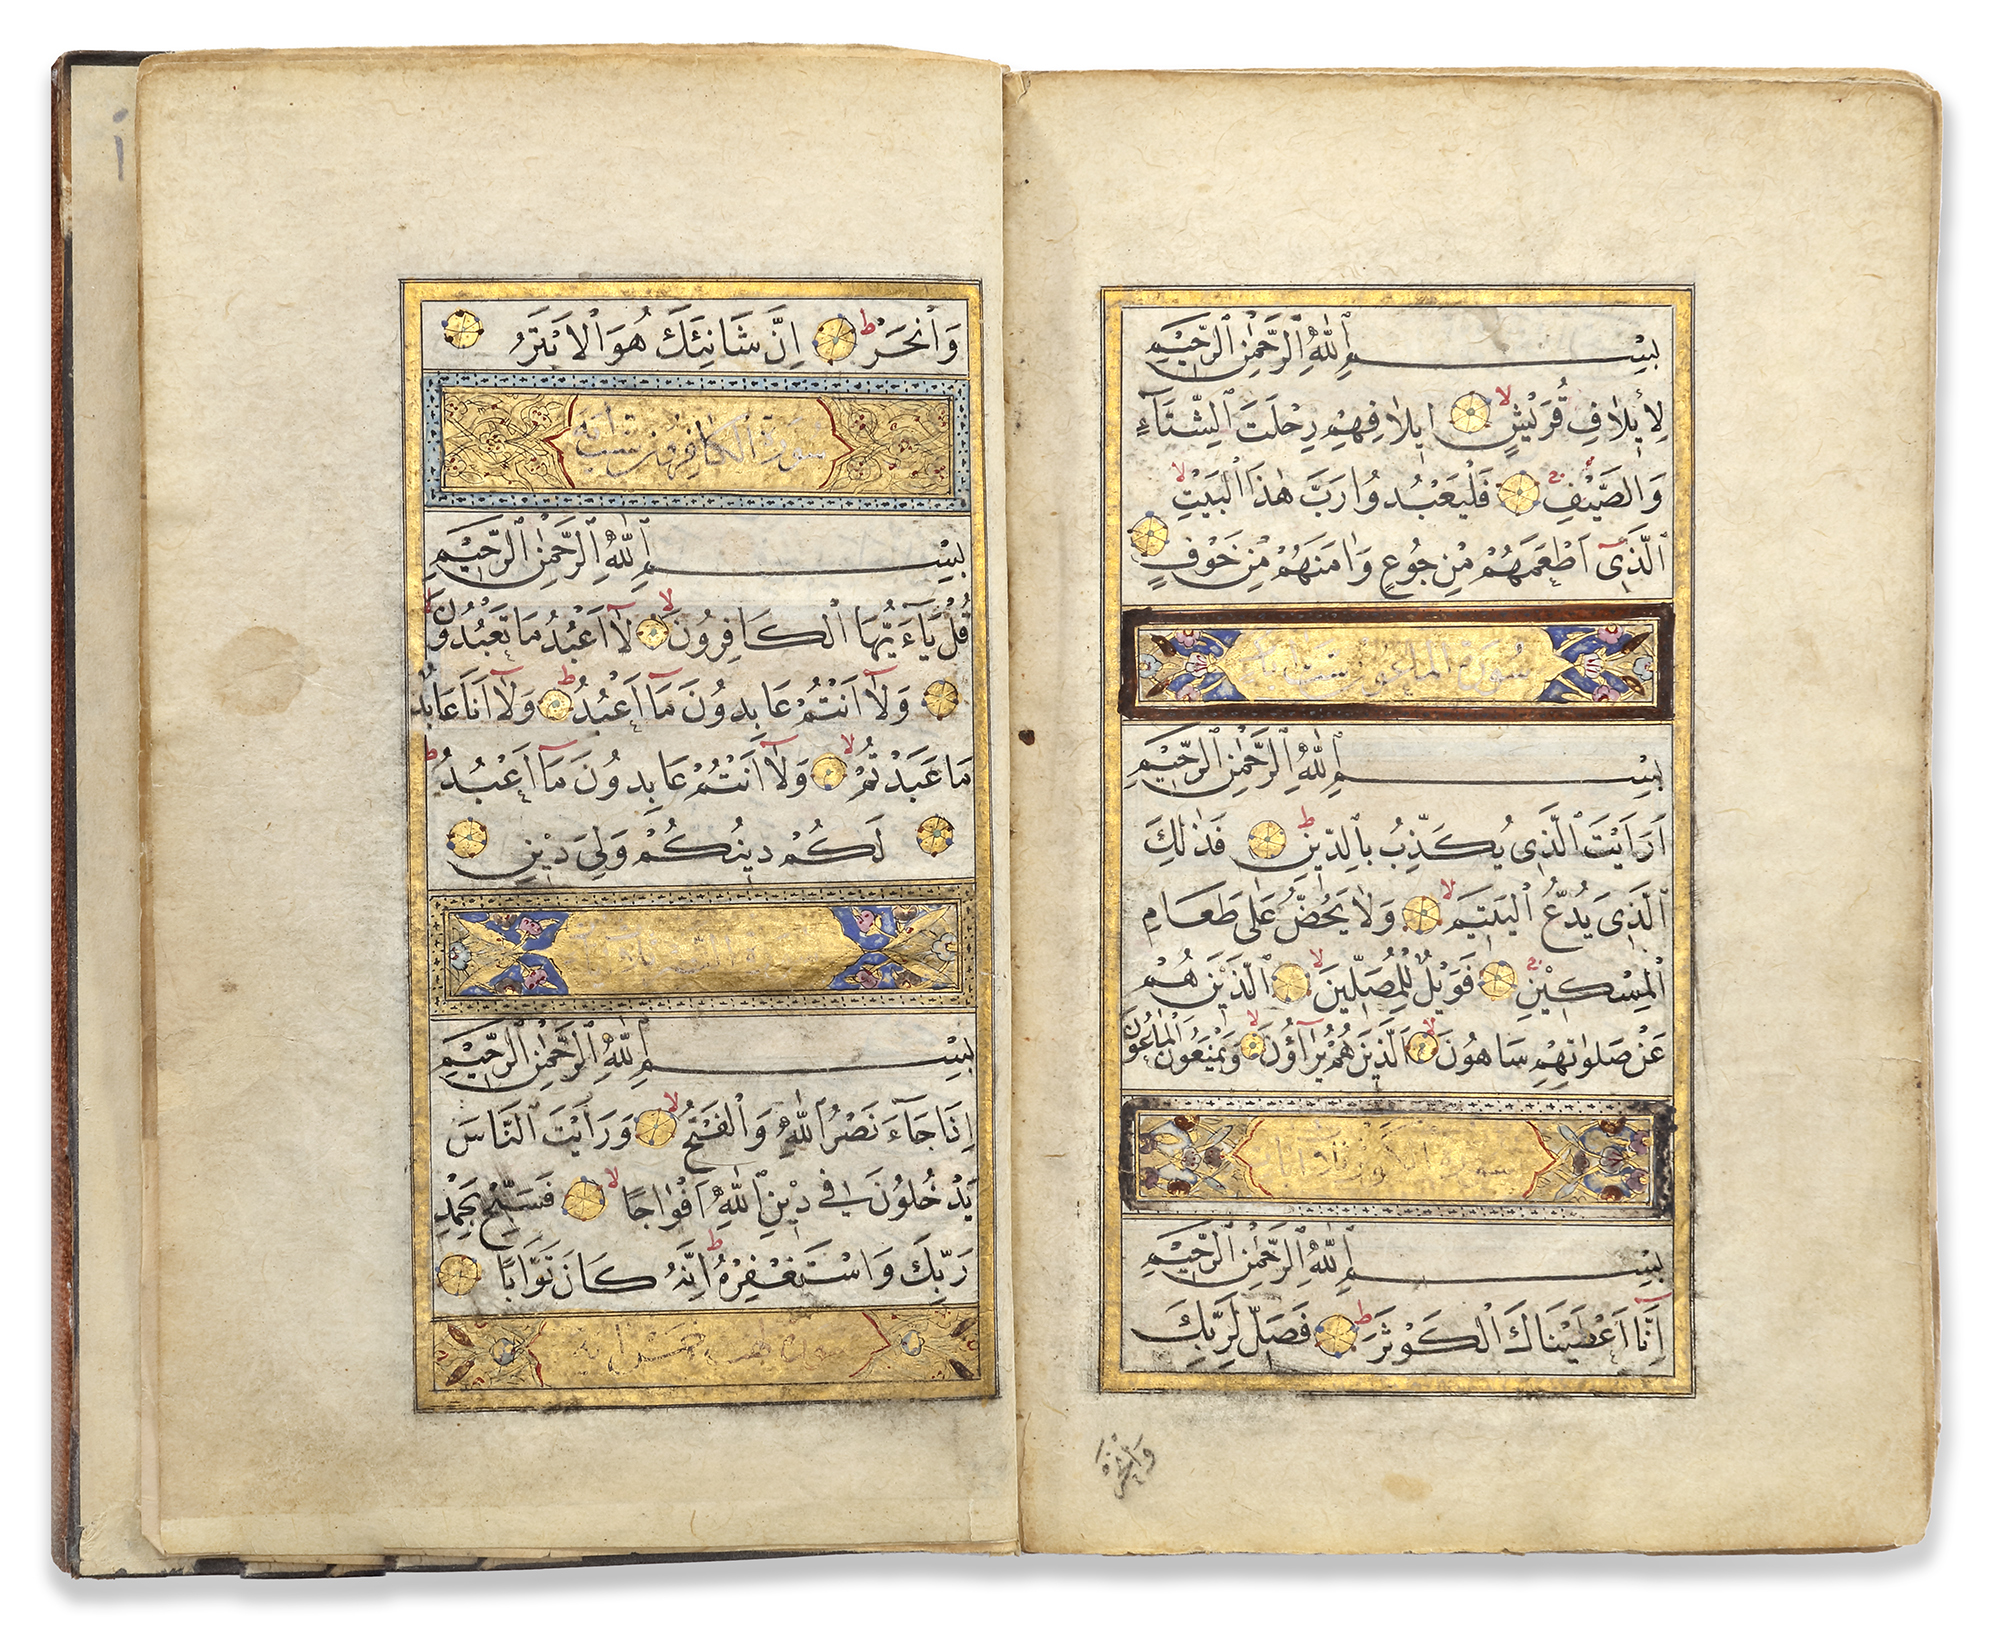 بِسْمِ ٱللّٰهِ ٱلرَّحْمٰنِ ٱلرَّحِيْمِ
لِأِيْلَافِ قُرَيْشٍ لا اِيْلَافِهِمْ رِحْلَتَ ٱلشِّتَآءِ
وَالصَّيْفِ ج فَلْيَعْبُدُوا رَبَّ هٰذَا ٱلْبَيْتِ لا
ٱلَّذِىٓ اَطْعَمَهُمْ مِنْ جُوعٍ وَاٰمَنَهُمْ مِنْ خَوْفٍ
سورة الماعون
بِسْمِ ٱللّٰهِ ٱلرَّحْمٰنِ ٱلرَّحِيْمِ
اَرَاَيْتَ ٱلَّذِى يُكَذِّبُ بِالدِّيْنِ ط فَذٰلِكَ
ٱلَّذِى يَدُعُّ ٱلْيَتِيْمَ لا وَلَا يَحُضُّ عَلٰى طَعَامِ
ٱلْمِسْكِيْنِ ج فَوَيْلٌ لِلْمُصَلِّيْنَ لا ٱلَّذِيْنَ هُمْ
عَنْ صَلَوٰتِهِمْ سَاهُونَ لا ٱلَّذِيْنَ هُمْ يُرَآؤُنَ لا وَيَمْنَعُونَ ٱلْمَاعُونَ
سورة
بِسْمِ ٱللّٰهِ ٱلرَّحْمٰنِ ٱلرَّحِيْمِ
اِنَّآ اَعْطَيْنَاكَ ٱلْكَوْثَرَ ط فَصَلِّ لِرَبِّكَ
وَانْحَرْ
وَانْحَرْ ط اِنَّ شَانِئَكَ هُوَ ٱلْاَبْتَرُ
سورة الكافرون
بِسْمِ ٱللّٰهِ ٱلرَّحْمٰنِ ٱلرَّحِيْمِ
قُلْ يَآءَيُّهَا ٱلْكَافِرُونَ لا لَآ اَعْبُدُ مَا تَعْبُدُونَ لا
وَلَآ اَنْتُمْ عَابِدُونَ مَآ اَعْبُدُ ط وَلَآ اَنَا عَابِدٌ
مَا عَبَدْتُمْ لا وَلَآ اَنْتُمْ عَابِدُونَ مَآ اَعْبُدُ ط
لَكُمْ دِينُكُمْ وَلِىَ دِيْنِ
بِسْمِ ٱللّٰهِ ٱلرَّحْمٰنِ ٱلرَّحِيْمِ
اِذَا جَآءَ نَصْرُ ٱللّٰهِ وَٱلْفَتْحُ لا وَرَاَيْتَ ٱلنَّاسَ
يَدْخُلُونَ فِى دِيْنِ ٱللّٰهِ اَفْوَاجًا لا فَسَبِّحْ بِحَمْدِ
رَبِّكَ وَاسْتَغْفِرْهُ ط اِنَّهُ كَانَ تَوَّابًا